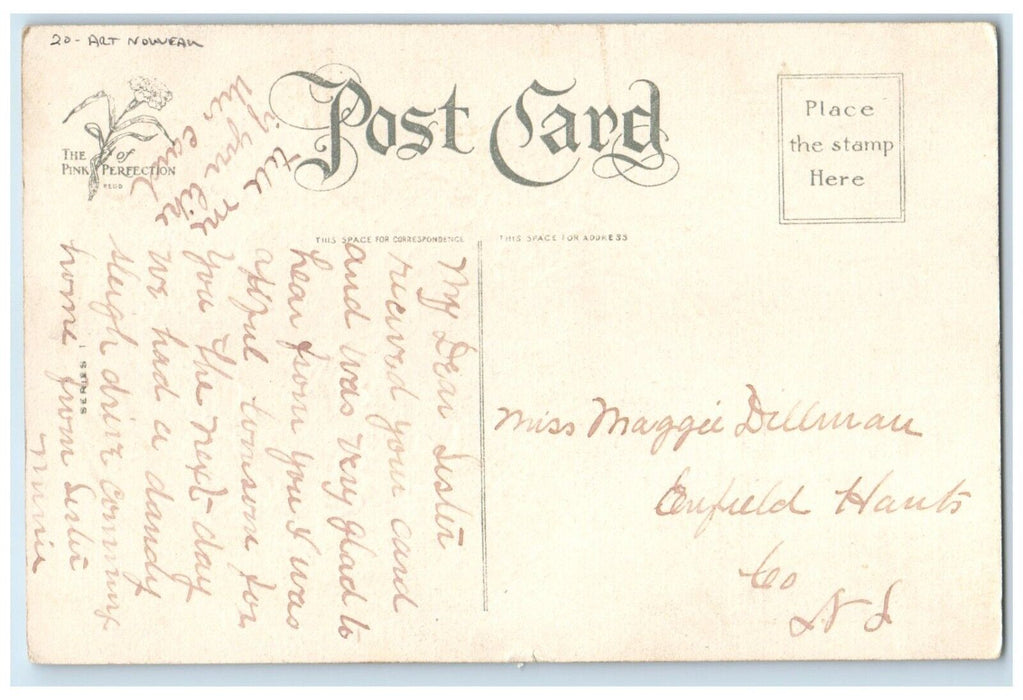 20 - ART NOUVEAU
THE of
PINK PERFECTION
REGD
Post Card
Place
the stamp
Here
THIS SPACE FOR CORRESPONDENCE
THIS SPACE FOR ADDRESS
SERIES 1
My Dear Sister
recived your card
and was very glad to
hear from you I was
lonsom for
you the next day
we had a dandy
sleigh drive comming
home from Sister
Minnie
tell me
if you like
this card
Miss Maggie Dillman
Enfield Hants
Co
N S